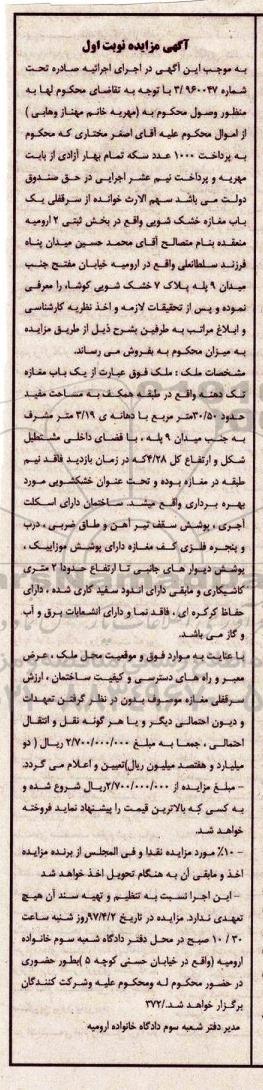 آگهی مزایده نوبت اول
به موجب این آگهی در اجرای اجرائیه صادره تحت
شماره ۳/۹۶۰۰۴۷ با توجه به تقاضای محکوم لها به
منظور وصول محکوم به (مهریه خانم مهناز وهابی )
از اموال محکوم علیه آقای اصغر مختاری که محکوم
به پرداخت ۱۰۰۰ عدد سکه تمام بهار آزادی از بابت
مهریه و پرداخت نیم عشر اجرایی در حق صندوق
دولت می باشد سهم الارث خوانده از سرقفلی یک
باب مغازه خشک شویی واقع در بخش ثبتی ۲ ارومیه
منعقده بنام متصالح آقای محمد حسین میدان پناه
فرزند سلطانعلی واقع در ارومیه خیابان مفتح جنب
میدان ۹ پله پلاک ۷ خشک شویی کوشا، را معرفی
نموده و پس از تحقیقات لازمه و اخذ نظریه کارشناسی
و ابلاغ مراتب به طرفین بشرح ذیل از طریق مزایده
به میزان محکوم به بفروش می رساند.
مشخصات ملک : ملک فوق عبارت از یک باب مغازه
تک دهنه واقع در طبقه همکف به مساحت مفید
حدود ۳۰/۵۰متر مربع با دهانه ی ۳/۱۹ متر مشرف
به جنب میدان ۹ پله ، با فضای داخلی مشتطیل
شکل و ارتفاع کل ۴/۲۸که در زمان بازدید فاقد نیم
طبقه در مغازه بوده و تحت عنوان خشکشویی مورد
بهره برداری واقع میشد. ساختمان دارای اسکلت
آجری ، پوشش سقف تیر آهن و طاق ضربی ، درب
و پنجره فلزی کف مغازه دارای پوشش موزاییک ،
پوشش دیوار های جانبی تا ارتفاع حدوداً ۲ متری
کاشیکاری و مابقی دارای اندود سفید کاری شده ، دارای
حفاظ کرکره ای ، فاقد نما و دارای انشعابات برق و آب
و گاز می باشد.
با عنایت به موارد فوق و موقعیت محل ملک ، عرض
معبر و راه های دسترسی و کیفیت ساختمان ، ارزش
سرقفلی مغازه موصوف بدون در نظر گرفتن تعهدات
و دیون احتمالی دیگر و یا هر گونه نقل و انتقال
احتمالی ، جمعا به مبلغ ۲/۷۰۰/۰۰۰/۰۰۰ ریال ( دو
میلیارد و هفتصد میلیون ریال)تعیین و اعلام می گردد.
- مبلغ مزایده از ۲/۷۰۰/۰۰۰/۰۰۰ریال شروع شده و
به کسی که بالاترین قیمت را پیشنهاد نماید فروخته
خواهد شد.
- ۱۰٪ مورد مزایده نقدا و فی المجلس از برنده مزایده
اخذ و مابقی آن به هنگام تحویل اخذ خواهد شد
- این اجرا نسبت به تنظیم و تهیه سند آن هیچ
تعهدی ندارد. مزایده در تاریخ ۹۷/۴/۲روز شنبه ساعت
۱۰ / ۳۰ صبح در محل دفتر دادگاه شعبه سوم خانواده
ارومیه (واقع در خیابان حسنی کوچه ۵ )بطور حضوری
در حضور محکوم له ومحکوم علیه وشرکت کنندگان
برگزار خواهد شد./۳۷۲
مدیر دفتر شعبه سوم دادگاه خانواده ارومیه